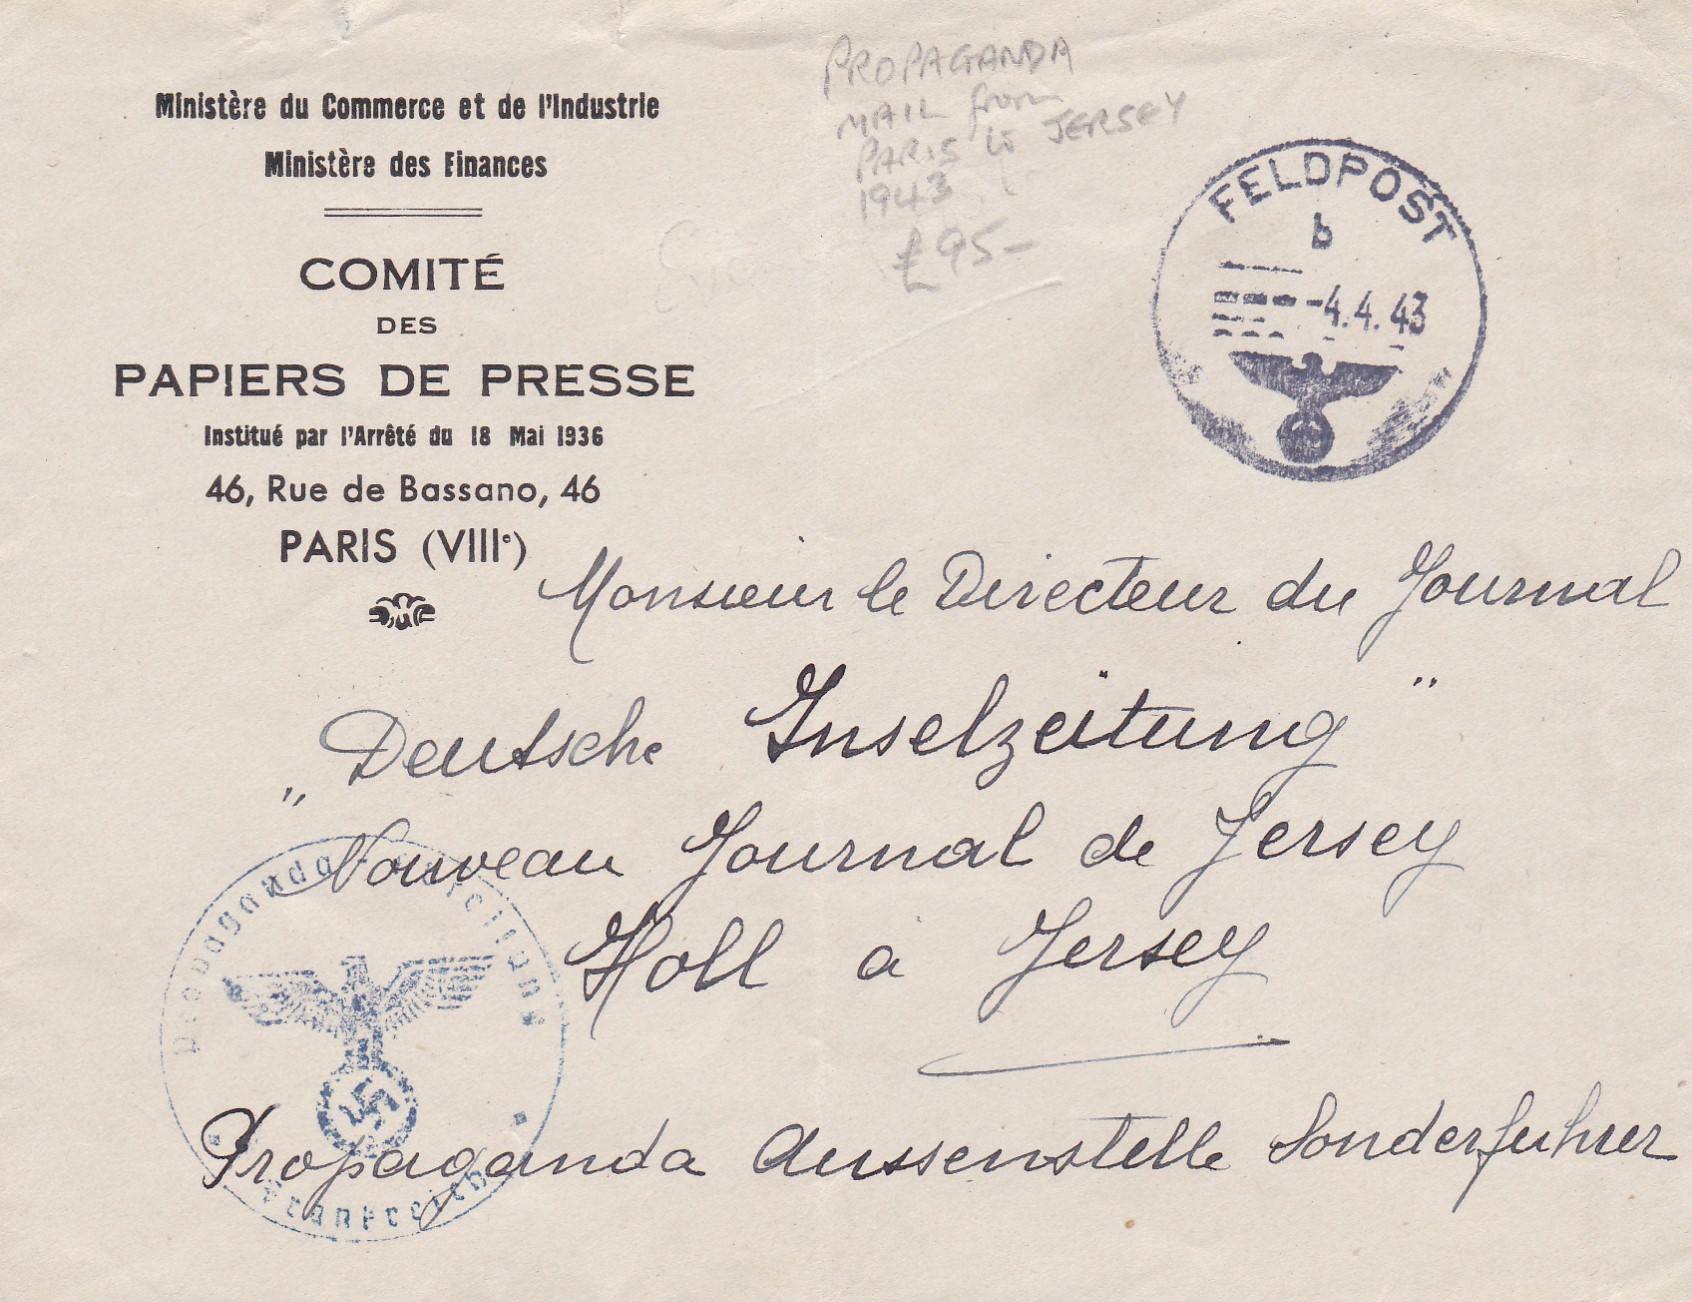 Ministère du Commerce et de l'Industrie
Ministère des Finances
COMITÉ
DES
PAPIERS DE PRESSE
Institué par l'Arrêté du 18 Mai 1936
46, Rue de Bassano, 46
PARIS (VIIIe)
PROPAGANDA
MAIL from
PARIS to JERSEY
1943
£95-
FELDPOST
b
-4.4.43
Monsieur le Directeur du Journal
„Deutsche Inselzeitung"
Nouveau Journal de Jersey
Holl a Jersey
Propaganda Aussenstelle Sonderfuhrer
Propaganda-Abteilung
Frankreich